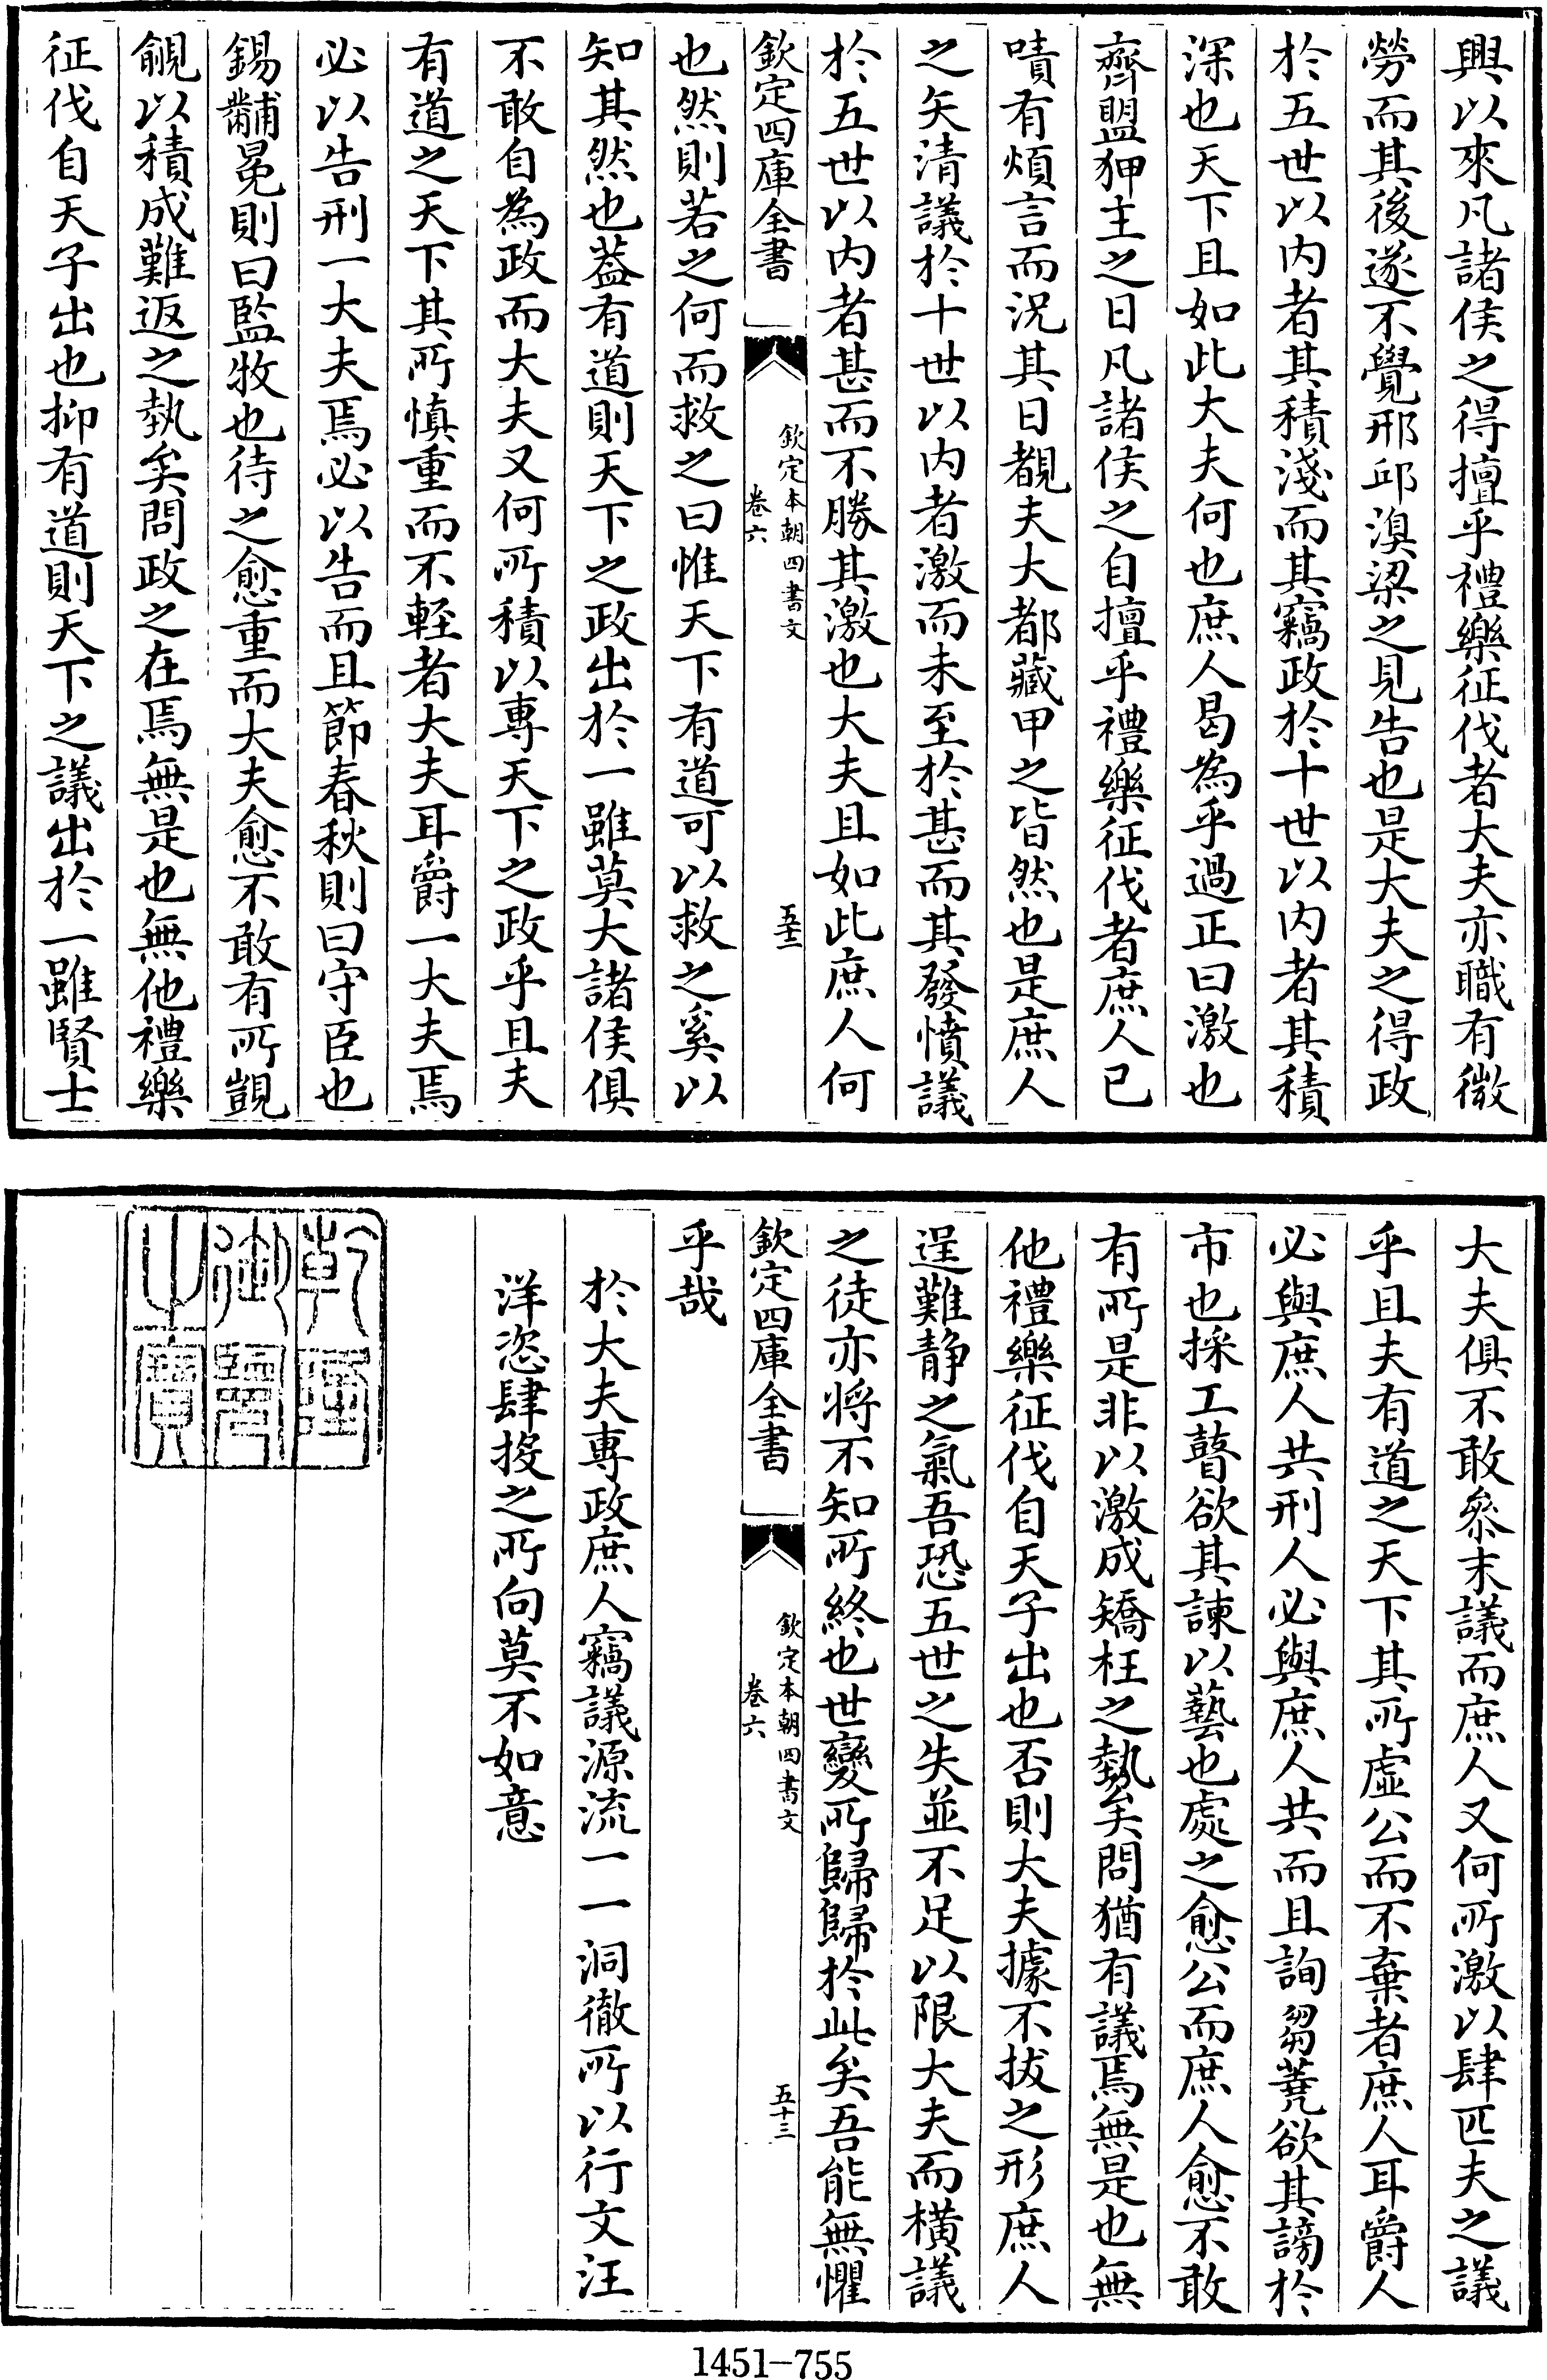 興以來凡諸侯之得擅乎禮樂征伐者大夫亦職有微
勞而其後遂不覺邢邱溴梁之見告也是大夫之得政
於五世以内者其積淺而其竊政於十世以内者其積
深也天下且如此大夫何也庶人曷為乎過正曰激也
齊盟狎主之日凡諸侯之自擅乎禮樂征伐者庶人已
嘖有煩言而況其日覩夫大都藏甲之皆然也是庶人
之矢清議於十世以内者激而未至於甚而其發憤議
於五世以内者甚而不勝其激也大夫且如此庶人何
欽定四庫全書
欽定本朝四書文
卷六
五十二
也然則若之何而救之曰惟天下有道可以救之奚以
知其然也葢有道則天下之政出於一雖莫大諸侯俱
不敢自為政而大夫又何所積以專天下之政乎且夫
有道之天下其所慎重而不輕者大夫耳爵一大夫焉
必以告刑一大夫焉必以告而且節春秋則曰守臣也
錫黼冕則曰監牧也待之愈重而大夫愈不敢有所覬
覦以積成難返之埶矣問政之在焉無是也無他禮樂
征伐自天子出也抑有道則天下之議出於一雖賢士
大夫俱不敢叅末議而庶人又何所激以肆匹夫之議
乎且夫有道之天下其所虚公而不棄者庶人耳爵人
必與庶人共刑人必與庶人共而且詢芻蕘欲其謗於
市也採工瞽欲其諫以藝也處之愈公而庶人愈不敢
有所是非以激成矯枉之勢矣問猶有議焉無是也無
他禮樂征伐自天子出也否則大夫據不拔之形庶人
逞難静之氣吾恐五世之失並不足以限大夫而横議
之徒亦将不知所終也世變所歸歸於此矣吾能無懼
欽定四庫全書
欽定本朝四書文
卷六
五十三
乎哉
於大夫專政庶人竊議源流一一洞徹所以行文汪
洋恣肆投之所向莫不如意
乾隆御覽之寶
1451-755